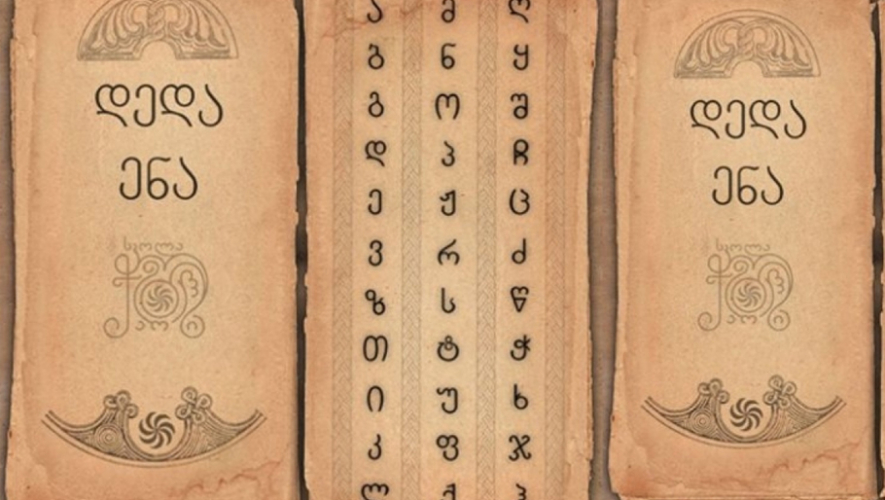 დედა
ენა
სკოლა
ა მ ღ
ბ ნ ყ
გ ო შ
დ პ ჩ
ე ჟ ც
ვ რ ძ
ზ ს წ
თ ტ ჭ
ი უ ხ
კ ფ ჯ
ლ ქ ჰ
დედა
ენა
სკოლა